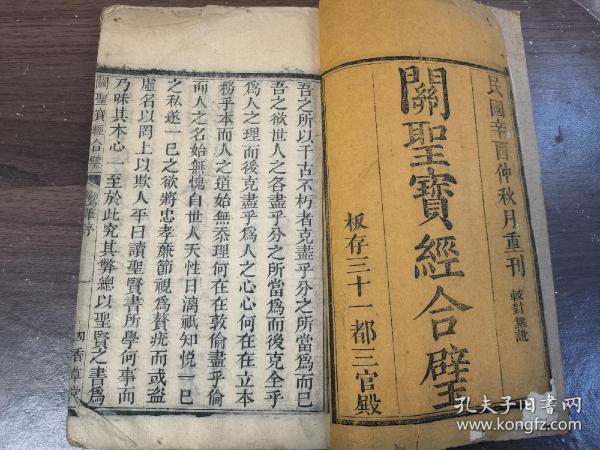 民國辛酉仲秋月重刊
較對無訛
關聖寶經合璧
板存三十一都三官殿
吾之所以千古不朽者克盡乎分之所當為而已
吾之欲世人之各盡乎分之所當為而後克全乎
為人之理而後克盡乎為人之心心何在在立本
務乎本而人之道始無忝理何在在敦倫盡乎倫
而人之名始無愧自世人天性日漓祇知悅一巳
之私遂一巳之欲將忠孝廉節視為贅疣而或盜
虛名以罔上以欺人平曰讀聖賢書所學何事而
乃昧其本心一至於此究其弊總以聖賢之書為
關聖寶經合璧
序
香草
孔夫子旧书网
kongfz.com